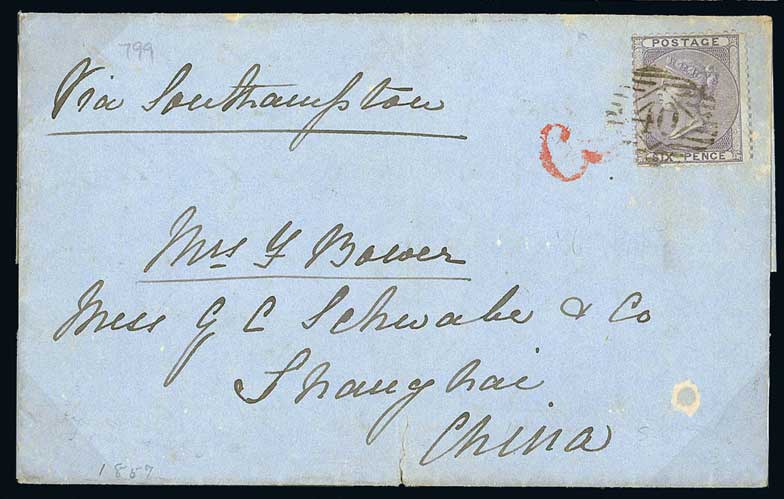 799
POSTAGE
Via Southampton
SIX PENCE
Mrs F Bower
Mess G C Schwabe & Co
Shanghai
China
1857